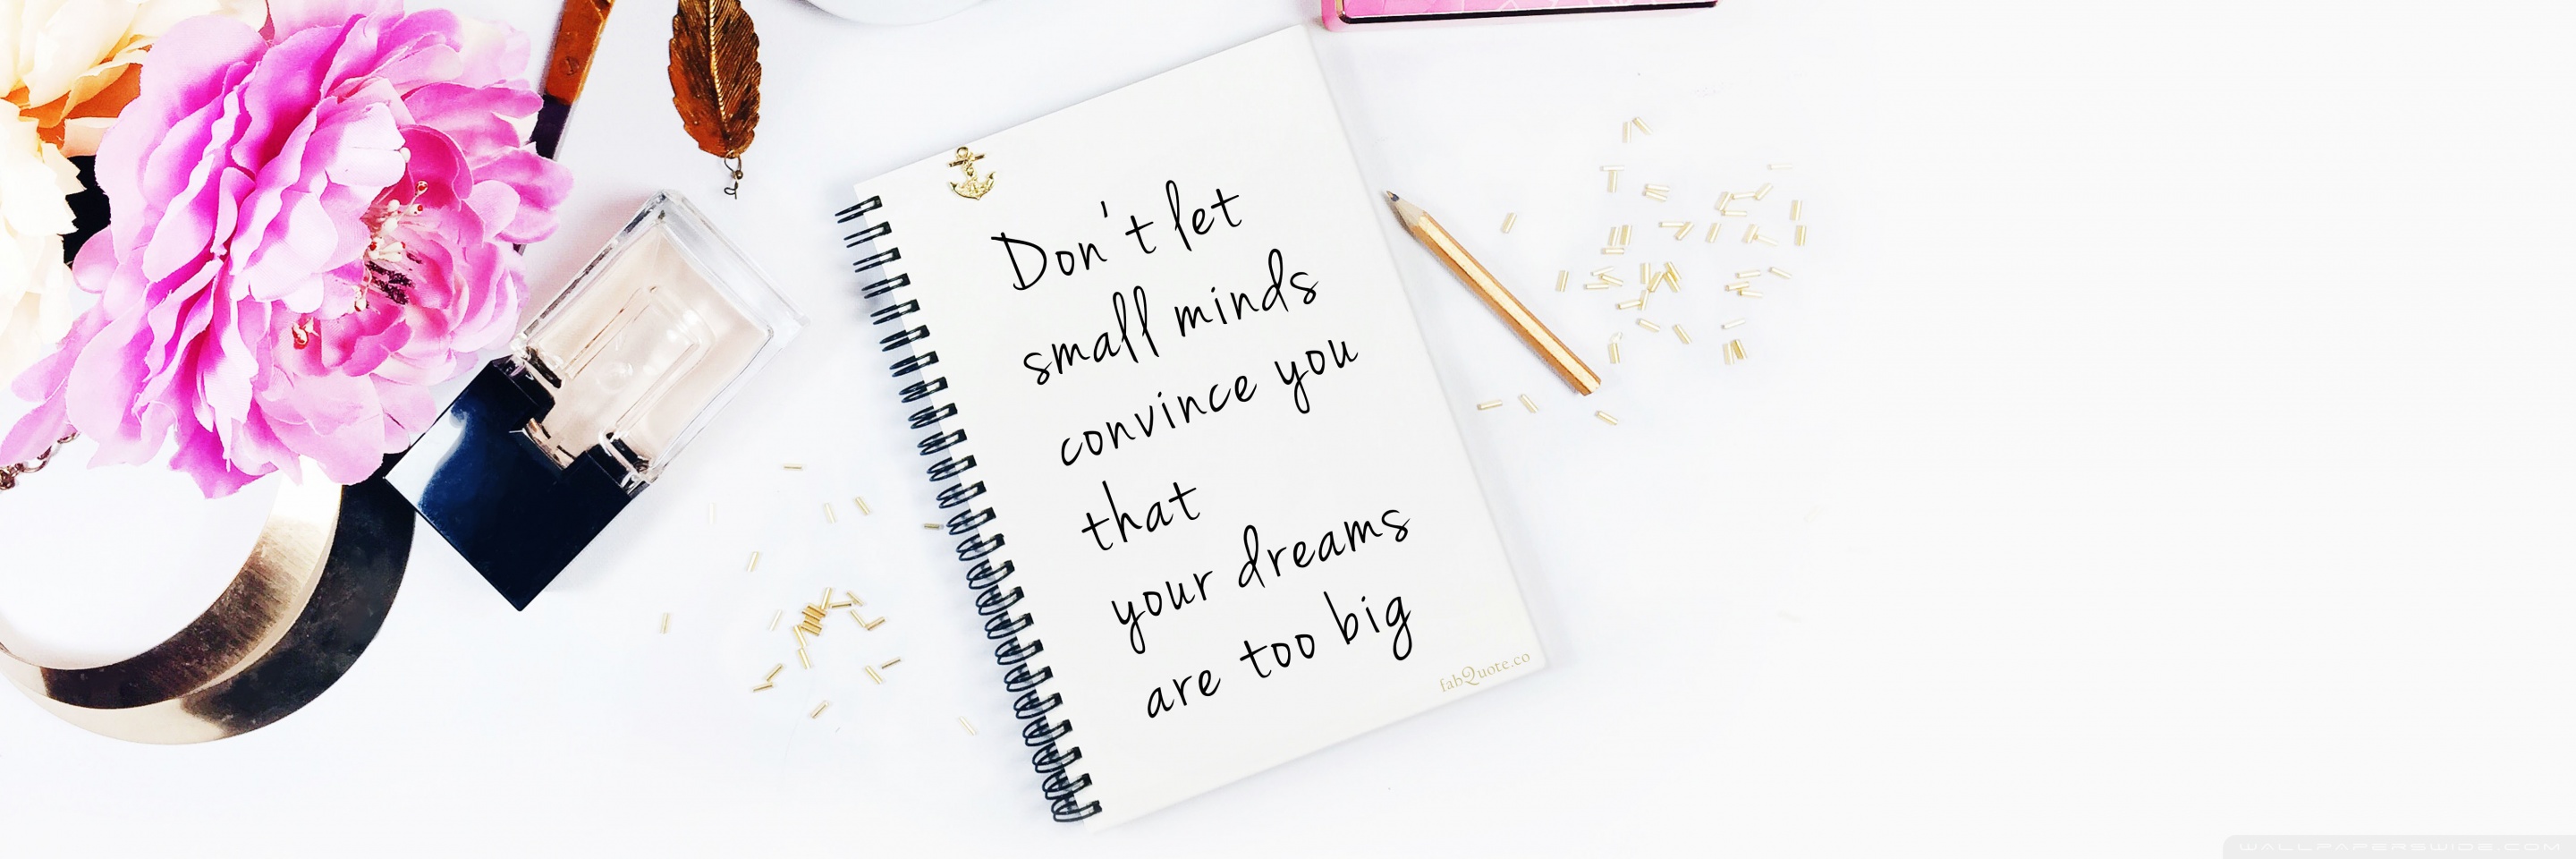 Don't let
small minds
convince you
that
your dreams
are too big
fabQuote.co
WALLPAPERSWIDE.COM